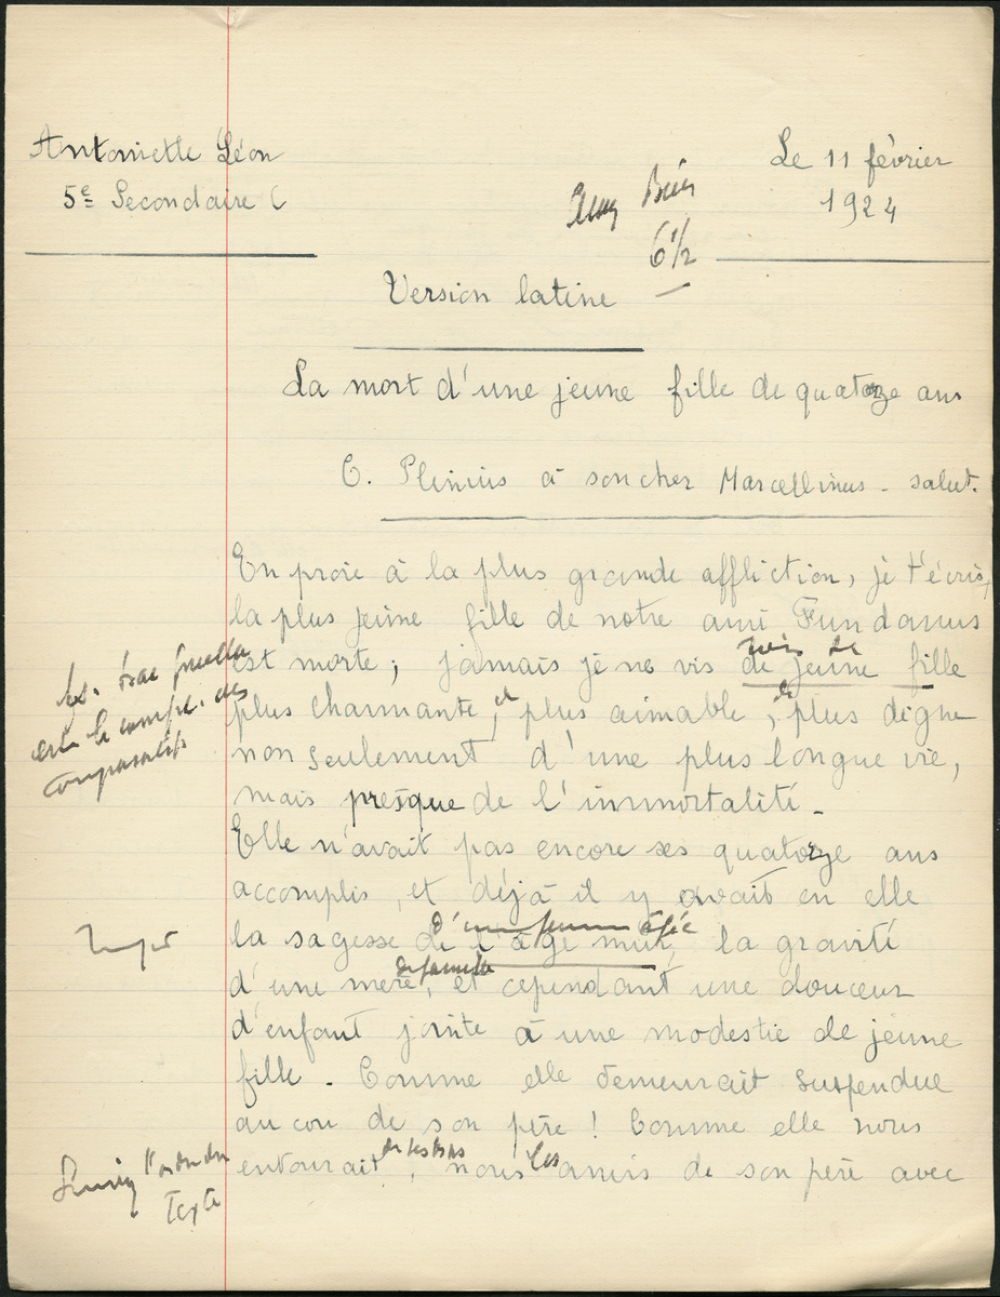 Antoinette Léon
Le 11 février
5e Secondaire C
1924
Assez Bien
6 1/2
Version latine
La mort d'une jeune fille de quatorze ans
C. Plinius à son cher Marcellinus - salut.
En proie à la plus grande affliction, je t'écris,
la plus jeune fille de notre ami Fundanus
est morte ; jamais je ne vis de jeune fille
plus charmante, et plus aimable, et plus digne
comparatifs
non seulement d'une plus longue vie,
mais presque de l'immortalité.
Elle n'avait pas encore ses quatorze ans
accomplis, et déjà il y avait en elle
d'une femme âgée
la sagesse de l'âge mur, la gravité
de famille
d'une mère, et cependant une douceur
d'enfant jointe à une modestie de jeune
fille. Comme elle demeurait suspendue
au cou de son père ! Comme elle nous
de ses bras
entourait, nous les amis de son père avec
l'ordre du
Texte